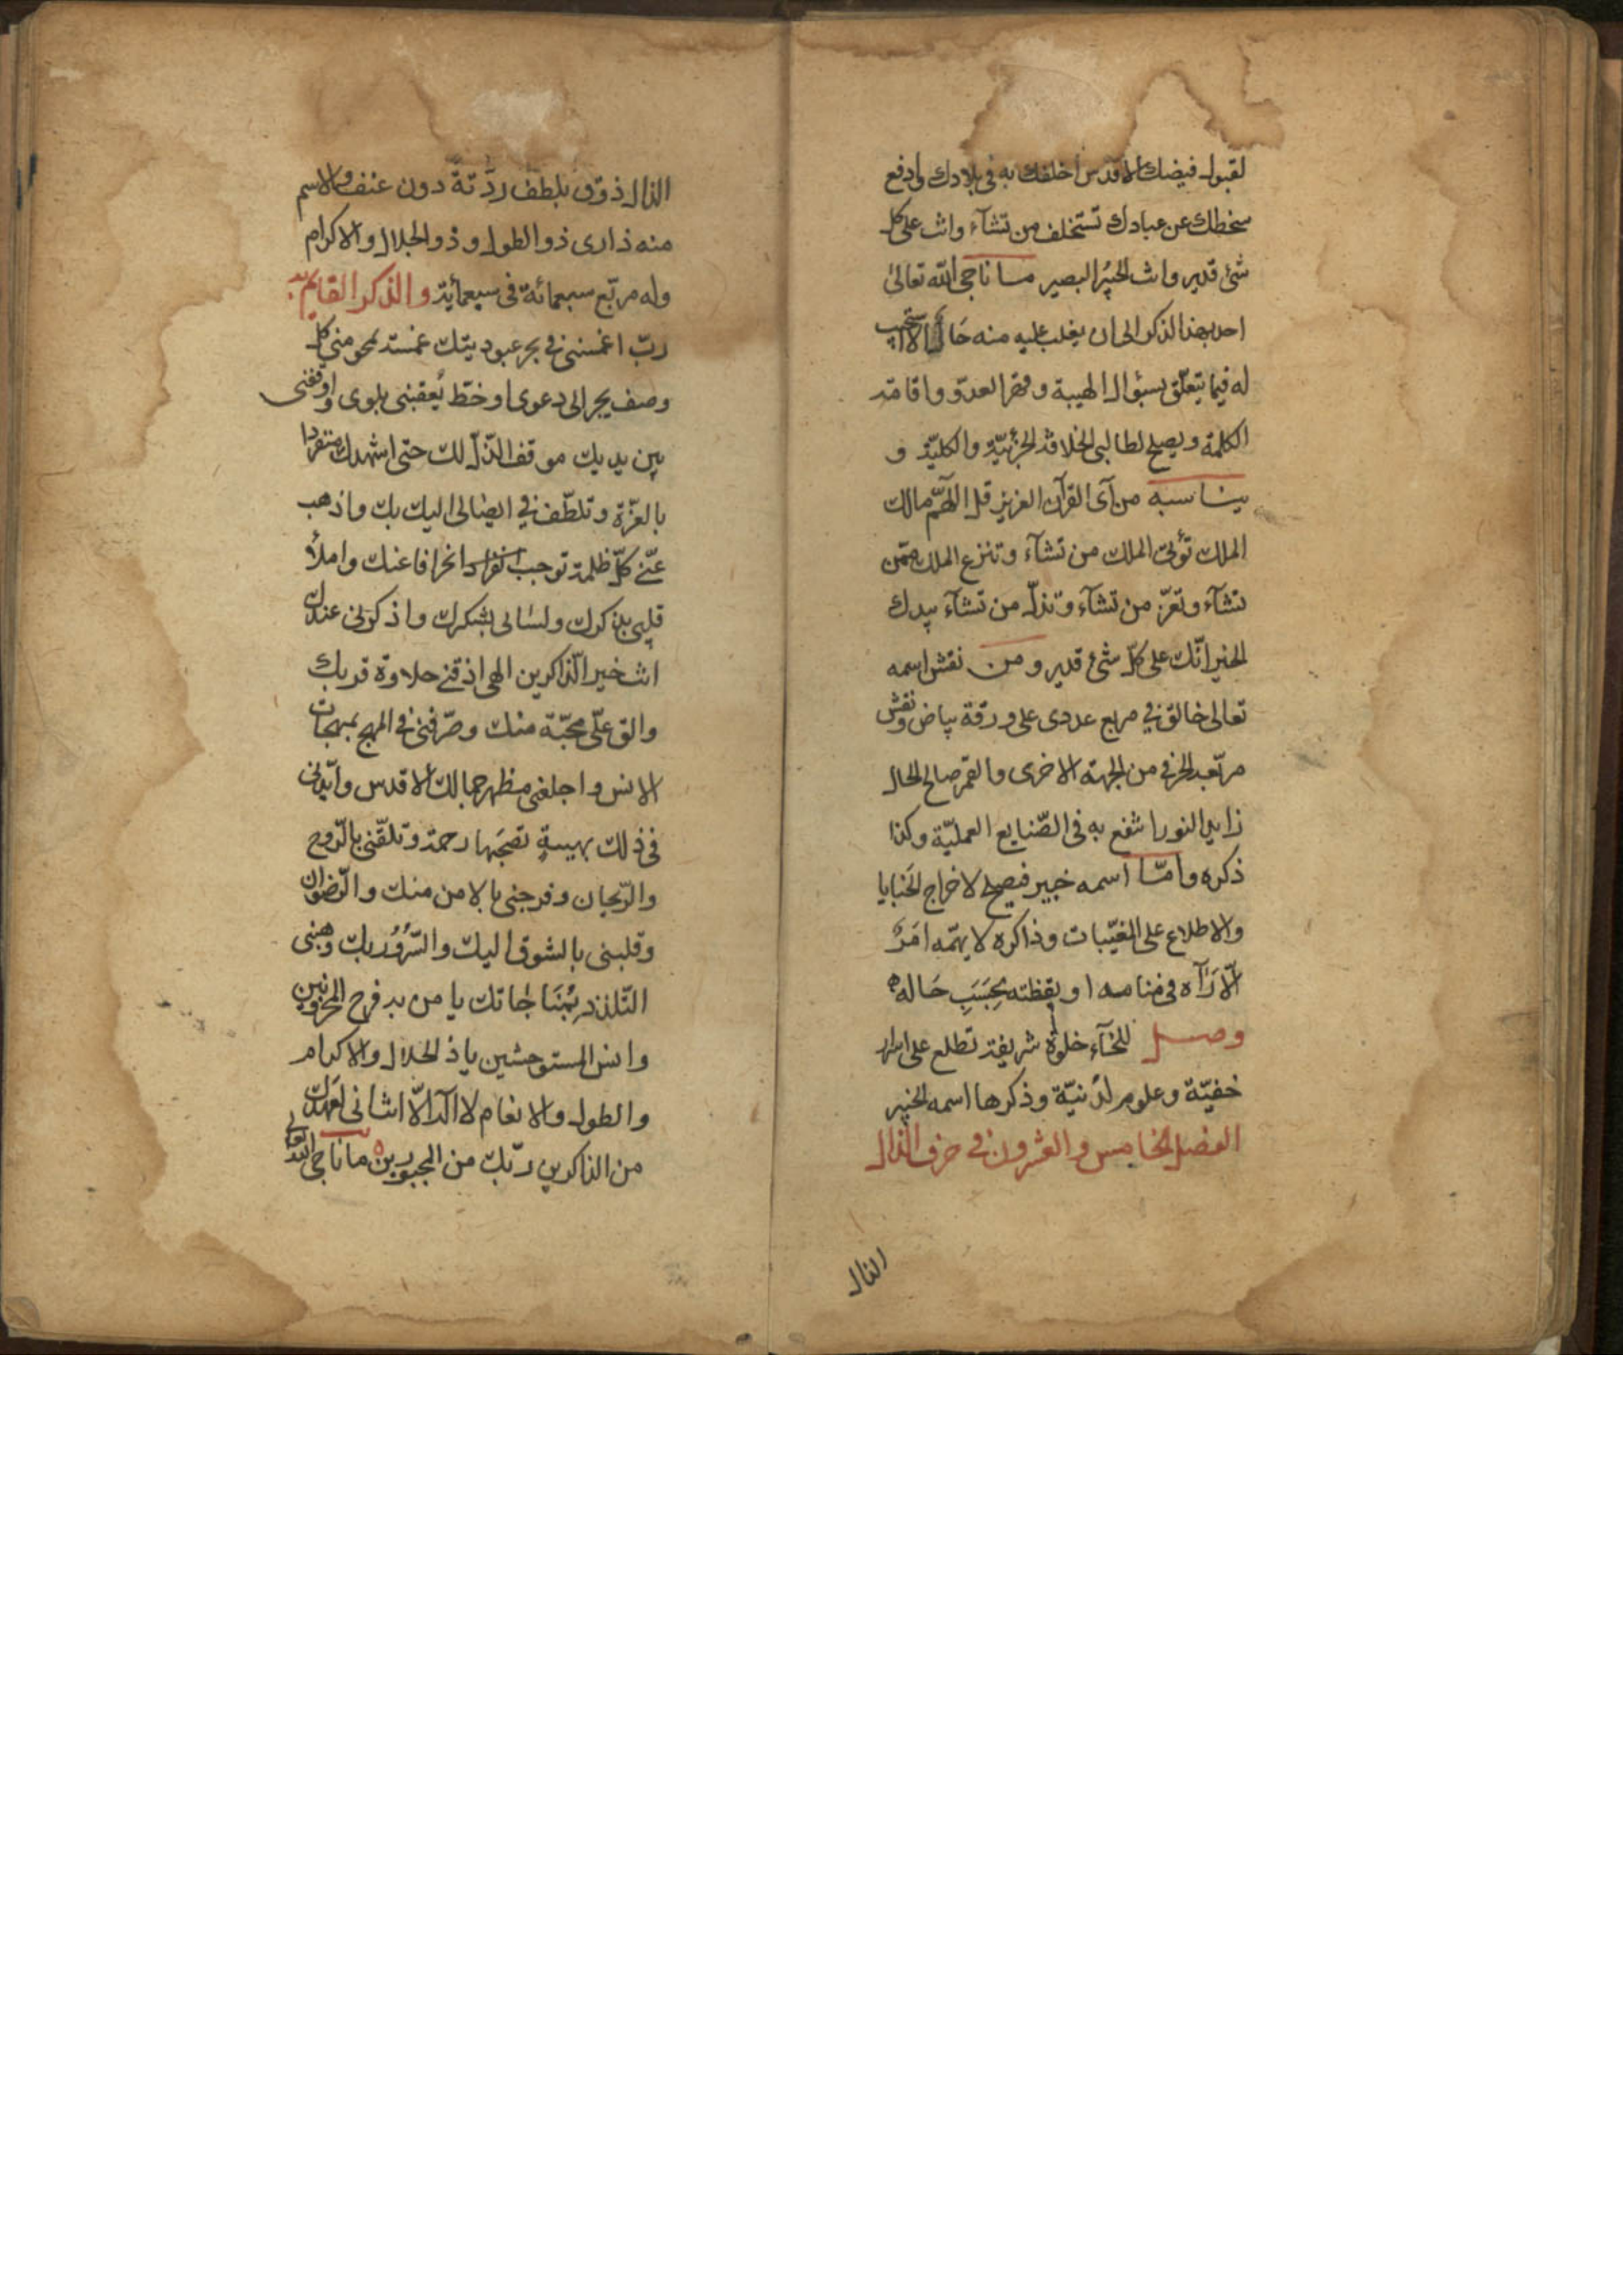 لقبول فيضك الاقدس اخلفك به فى بلادك وادفع
سخطك عن عبادك تستخلف من تشآء وانت على كل
شئ قدير وانت الخبير البصير ما ناجى الله تعالى
احد بهذا الذكر الى ان يغلب عليه منه حال الا استجيب
له فيما يتعلّق بسؤال الهيبة وقهر العدوّ واقامة
الكلمة ويصلح لطالبى الخلافة الجزئيّة والكليّة و
يناسبه من آى القرآن العزيز قل اللّهمّ مالك
الملك تؤتى الملك من تشآء وتنزع الملك ممّن
تشآء وتعزّ من تشآء وتذلّ من تشآء بيدك
الخير انّك على كلّ شئ قدير ومن نقش اسمه
تعالى خالق فى مربع عددى على ورقة بياض ونقش
مربّعه الحرفى من الجهة الاخرى والقمر صالح الحال
زايد النور انتفع به فى الصّنايع العمليّة وكذا
ذكره وامّا اسمه خبير فيصلح لاخراج الخبايا
والاطلاع على المغيّبات وذاكره لا يهمّه امر
الّا رآه فى منامه او يقظته بحسب حاله
وصل للخآء خلوة شريفة تطلع على اسرار
خفيّة وعلوم لدنيّة وذكرها اسمه الخبير
الفصل الخامس والعشرون فى حرف الذال
الذال
الذال ذوق بلطف ردّته دون عنف والاسم
منه ذارى ذو الطول وذو الجلال والاكرام
وله مربّع سبعمائة فى سبعمائة والذكر القايم به
ربّ اغمسنى فى بحر عبوديتك غمسة تمحو منى كل
وصف يجر الى دعوى او خطّ يعقبنى بلوى واوقفنى
بين يديك موقف الذّلّ لك حتى اشهدك منفردا
بالعزّة وتلطّف فى ايصالى اليك بك واذهب
عنّى كلّ ظلمة توجب انحرافا عنك واملأ
قلبى بذكرك ولسانى بشكرك واذكرنى عندك
انت خير الذّاكرين الهى اذقنى حلاوة قربك
والق علىّ محبّة منك وصرّفنى فى المهج بمبهجات
الانس واجلعنى مظهر جمالك الاقدس وايّدنى
فى ذلك بهيبة تصحبها رحمة وتلقّنى بالرّوح
والرّيحان وفرجنى بالامن منك والرّضوان
وقلبنى بالشوق اليك والسّرور بك وهبنى
التّلذذ بمناجاتك يا من به فرح المحزونين
وانس المستوحشين ياذ الجلال والاكرام
والطول والانعام لا اله الّا انت انى لعهدك
من الذاكرين ربّك من المجبورين ما ناجى الله تعالى